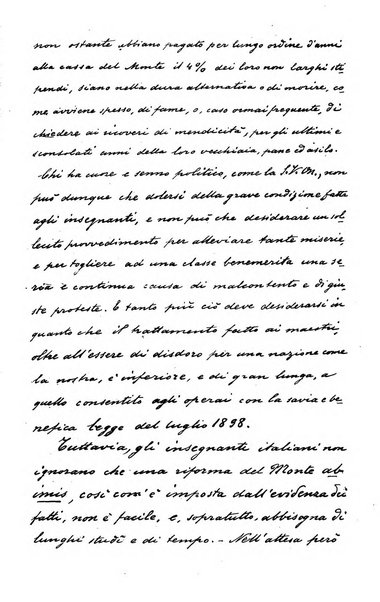 non ostante abbiano pagato per lungo ordine d'anni
alla cassa del Monte il 4% dei loro non larghi sti-
pendi, siano nella dura alternativa o di morire, co-
me avviene spesso, di fame, o, caso ormai frequente, di
chiedere ai ricoveri di mendicità, per gli ultimi e
sconsolati anni della loro vecchiaia, pane ed asilo.
Chi ha cuore e senno politico, come la S.V. On., non
può dunque che dolersi della grave condizione fatta
agli insegnanti, e non può che desiderare un sol-
lecito provvedimento per alleviare tante miserie
e per togliere ad una classe benemerita una se-
ria e continua causa di malcontento e di giu-
ste proteste. E tanto più ciò deve desiderarsi in
quanto che il trattamento fatto ai maestri,
oltre all'essere di disdoro per una nazione come
la nostra, è inferiore, e di gran lunga, a
quello consentito agli operai con la savia e be-
nefica legge del luglio 1898.
Tuttavia, gli insegnanti italiani non
ignorano che una riforma del Monte ab
imis, così com'è imposta dall'evidenza dei
fatti, non è facile, e, sopratutto, abbisogna di
lunghi studi e di tempo. - Nell'attesa però